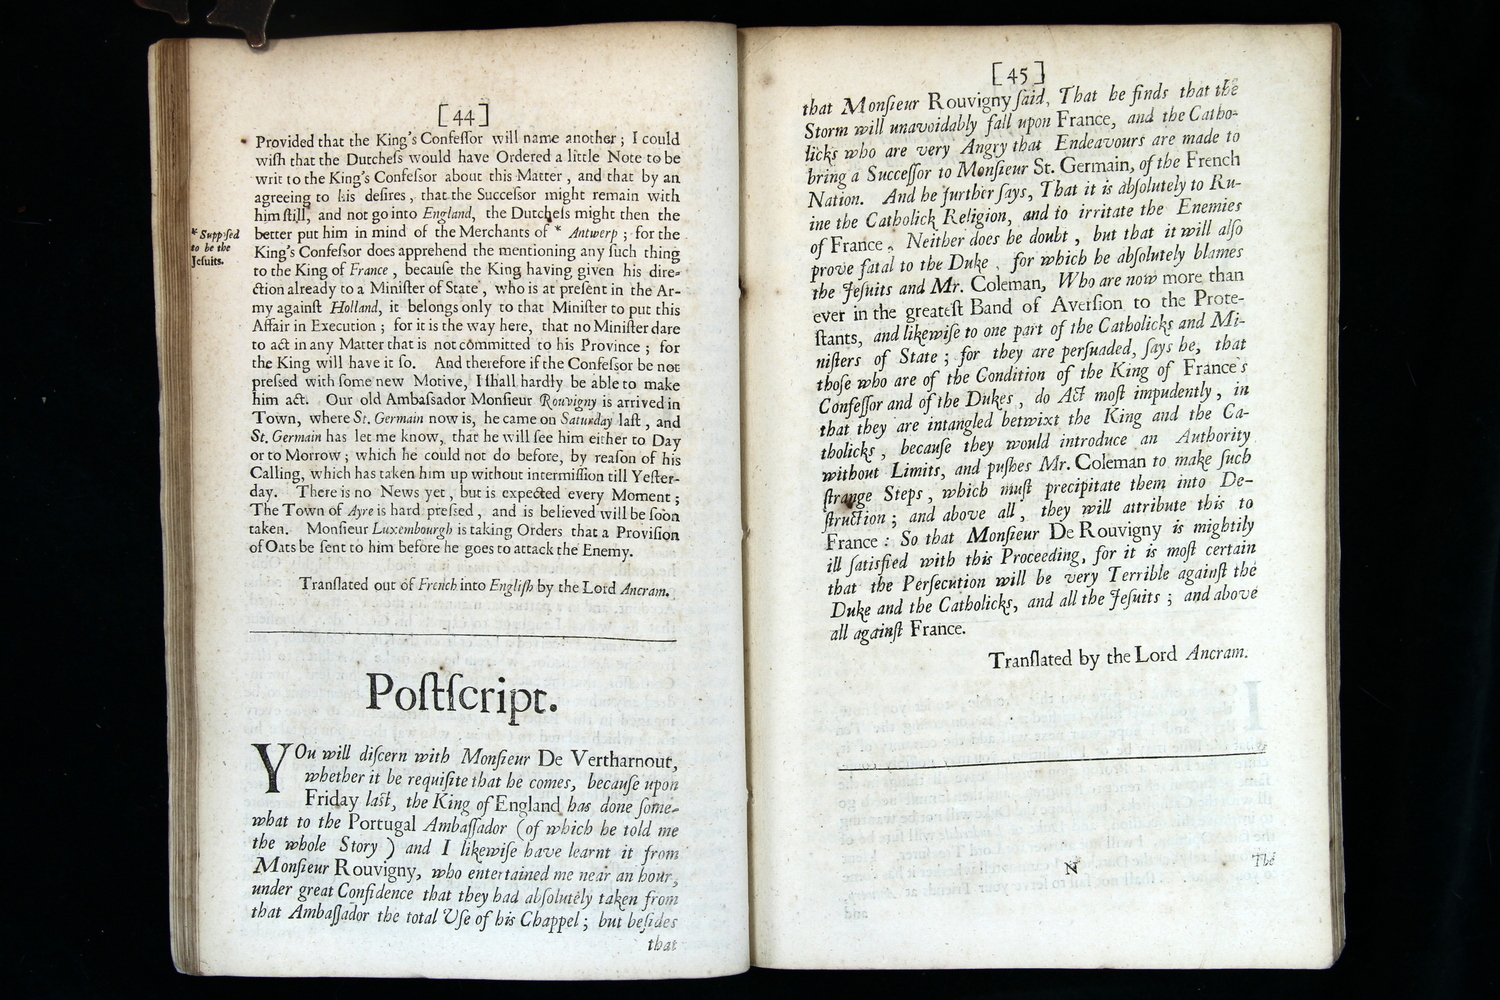 [44]
Provided that the King's Confeſſor will name another; I could
wiſh that the Dutcheſs would have Ordered a little Note to be
writ to the King's Confeſsor about this Matter, and that by an
agreeing to his deſires, that the Succeſsor might remain with
him ſtill, and not go into England, the Dutcheſs might then the
better put him in mind of the Merchants of * Antwerp; for the
* Suppoſed
to be the
Jeſuits.
King's Confeſsor does apprehend the mentioning any ſuch thing
to the King of France, becauſe the King having given his dire-
ction already to a Miniſter of State, who is at preſent in the Ar-
my againſt Holland, it belongs only to that Miniſter to put this
Affair in Execution; for it is the way here, that no Miniſter dare
to act in any Matter that is not cõmitted to his Province; for
the King will have it ſo. And therefore if the Confeſsor be not
preſsed with ſome new Motive, I ſhall hardly be able to make
him act. Our old Ambaſsador Monſieur Rouvigny is arrived in
Town, where St. Germain now is, he came on Saturday laſt, and
St. Germain has let me know, that he will ſee him either to Day
or to Morrow; which he could not do before, by reaſon of his
Calling, which has taken him up without intermiſſion till Yeſter-
day. There is no News yet, but is expected every Moment;
The Town of Ayre is hard preſsed, and is believed will be ſoon
taken. Monſieur Luxembourgh is taking Orders that a Proviſion
of Oats be ſent to him before he goes to attack the Enemy.
Tranſlated out of French into Engliſh by the Lord Ancram.
Poſtſcript.
YOu will diſcern with Monſieur De Vertharnout,
whether it be requiſite that he comes, becauſe upon
Friday laſt, the King of England has done ſome-
what to the Portugal Ambaſſador (of which he told me
the whole Story) and I likewiſe have learnt it from
Monſieur Rouvigny, who entertained me near an hour,
under great Confidence that they had abſolutely taken from
that Ambaſſador the total Uſe of his Chappel; but beſides
that
[45]
that Monſieur Rouvigny ſaid, That he finds that the
Storm will unavoidably fall upon France, and the Catho-
licks who are very Angry that Endeavours are made to
bring a Succeſſor to Monſieur St. Germain, of the French
Nation. And he further ſays, That it is abſolutely to Ru-
ine the Catholick Religion, and to irritate the Enemies
of France. Neither does he doubt, but that it will alſo
prove fatal to the Duke, for which he abſolutely blames
the Jeſuits and Mr. Coleman, Who are now more than
ever in the greateſt Band of Averſion to the Prote-
ſtants, and likewiſe to one part of the Catholicks and Mi-
niſters of State; for they are perſuaded, ſays he, that
thoſe who are of the Condition of the King of France's
Confeſſor and of the Dukes, do Act moſt impudently, in
that they are intangled betwixt the King and the Ca-
tholicks, becauſe they would introduce an Authority
without Limits, and puſhes Mr. Coleman to make ſuch
ſtrange Steps, which muſt precipitate them into De-
ſtruction; and above all, they will attribute this to
France: So that Monſieur De Rouvigny is mightily
ill ſatisfied with this Proceeding, for it is moſt certain
that the Perſecution will be very Terrible againſt the
Duke and the Catholicks, and all the Jeſuits; and above
all againſt France.
Tranſlated by the Lord Ancram.
N
The